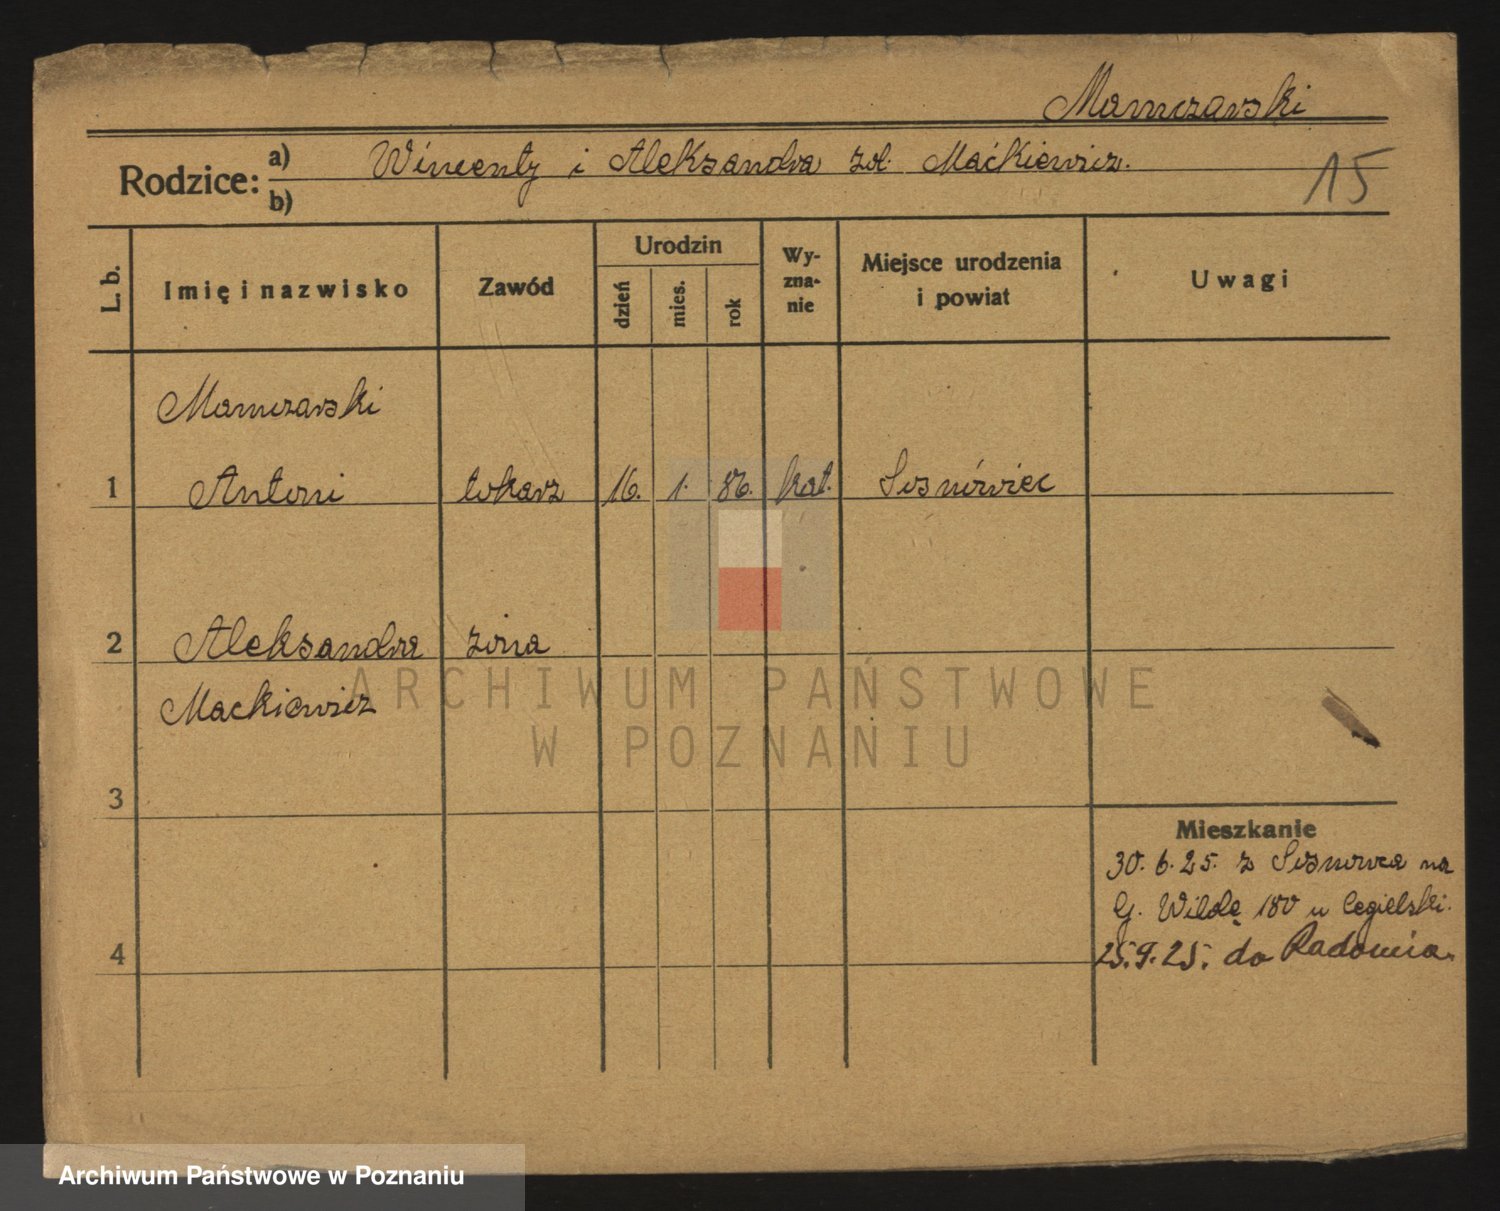 Mamczarski
Rodzice: a) Wincenty i Aleksandra zd. Maćkiewicz.
b)
15
L. b.
Imię i nazwisko
Zawód
Urodzin
dzień
mies.
rok
Wy-
zna-
nie
Miejsce urodzenia
i powiat
Uwagi
Mamczarski
1 Antoni tokarz 16. 1. 86. kat. Sosnówiec
2 Aleksandra żona
Mackiewicz
ARCHIWUM PAŃSTWOWE
W POZNANIU
3
Mieszkanie
30. 6. 25. z Sosnowca na
G. Wildę 180 u Cegielski.
4
25. 9. 25. do Radomia.
Archiwum Państwowe w Poznaniu